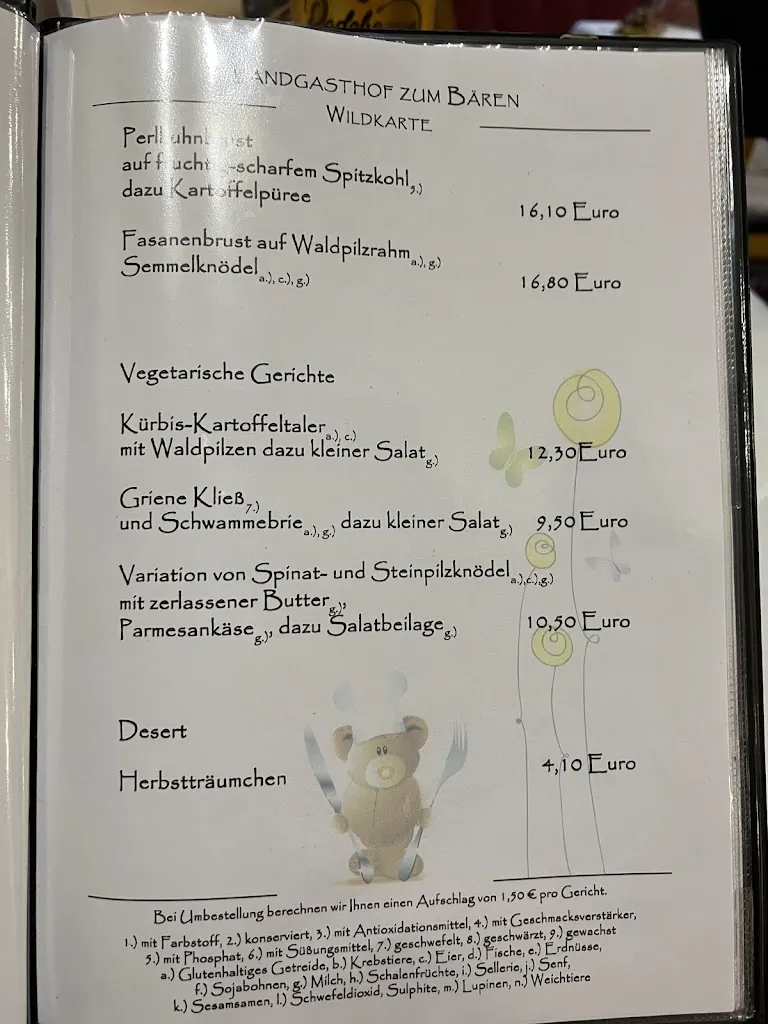 LANDGASTHOF ZUM BÄREN
WILDKARTE
auf scharfem Spitzkohl 5.)
dazu Kartoffelpüree
16,10 Euro
Fasanenbrust auf Waldpilzrahm a.), g.)
Semmelknödel a.), c.), g.)
16,80 Euro
Vegetarische Gerichte
Kürbis-Kartoffeltaler a.), c.)
mit Waldpilzen dazu kleiner Salat g.) 12,30 Euro
Griene Kließ 7.)
und Schwammebrie a.), g.) dazu kleiner Salat g.) 9,50 Euro
Variation von Spinat- und Steinpilzknödel a.),c.),g.)
mit zerlassener Butter g.),
Parmesankäse g.), dazu Salatbeilage g.) 10,50 Euro
Desert
Herbstträumchen 4,10 Euro
Bei Umbestellung berechnen wir Ihnen einen Aufschlag von 1,50 € pro Gericht.
1.) mit Farbstoff, 2.) konserviert, 3.) mit Antioxidationsmittel, 4.) mit Geschmacksverstärker,
5.) mit Phosphat, 6.) mit Süßungsmittel, 7.) geschwefelt, 8.) geschwärzt, 9.) gewachst
a.) Glutenhaltiges Getreide, b.) Krebstiere, c.) Eier, d.) Fische, e.) Erdnüsse,
f.) Sojabohnen, g.) Milch, h.) Schalenfrüchte, i.) Sellerie, j.) Senf,
k.) Sesamsamen, l.) Schwefeldioxid, Sulphite, m.) Lupinen, n.) Weichtiere